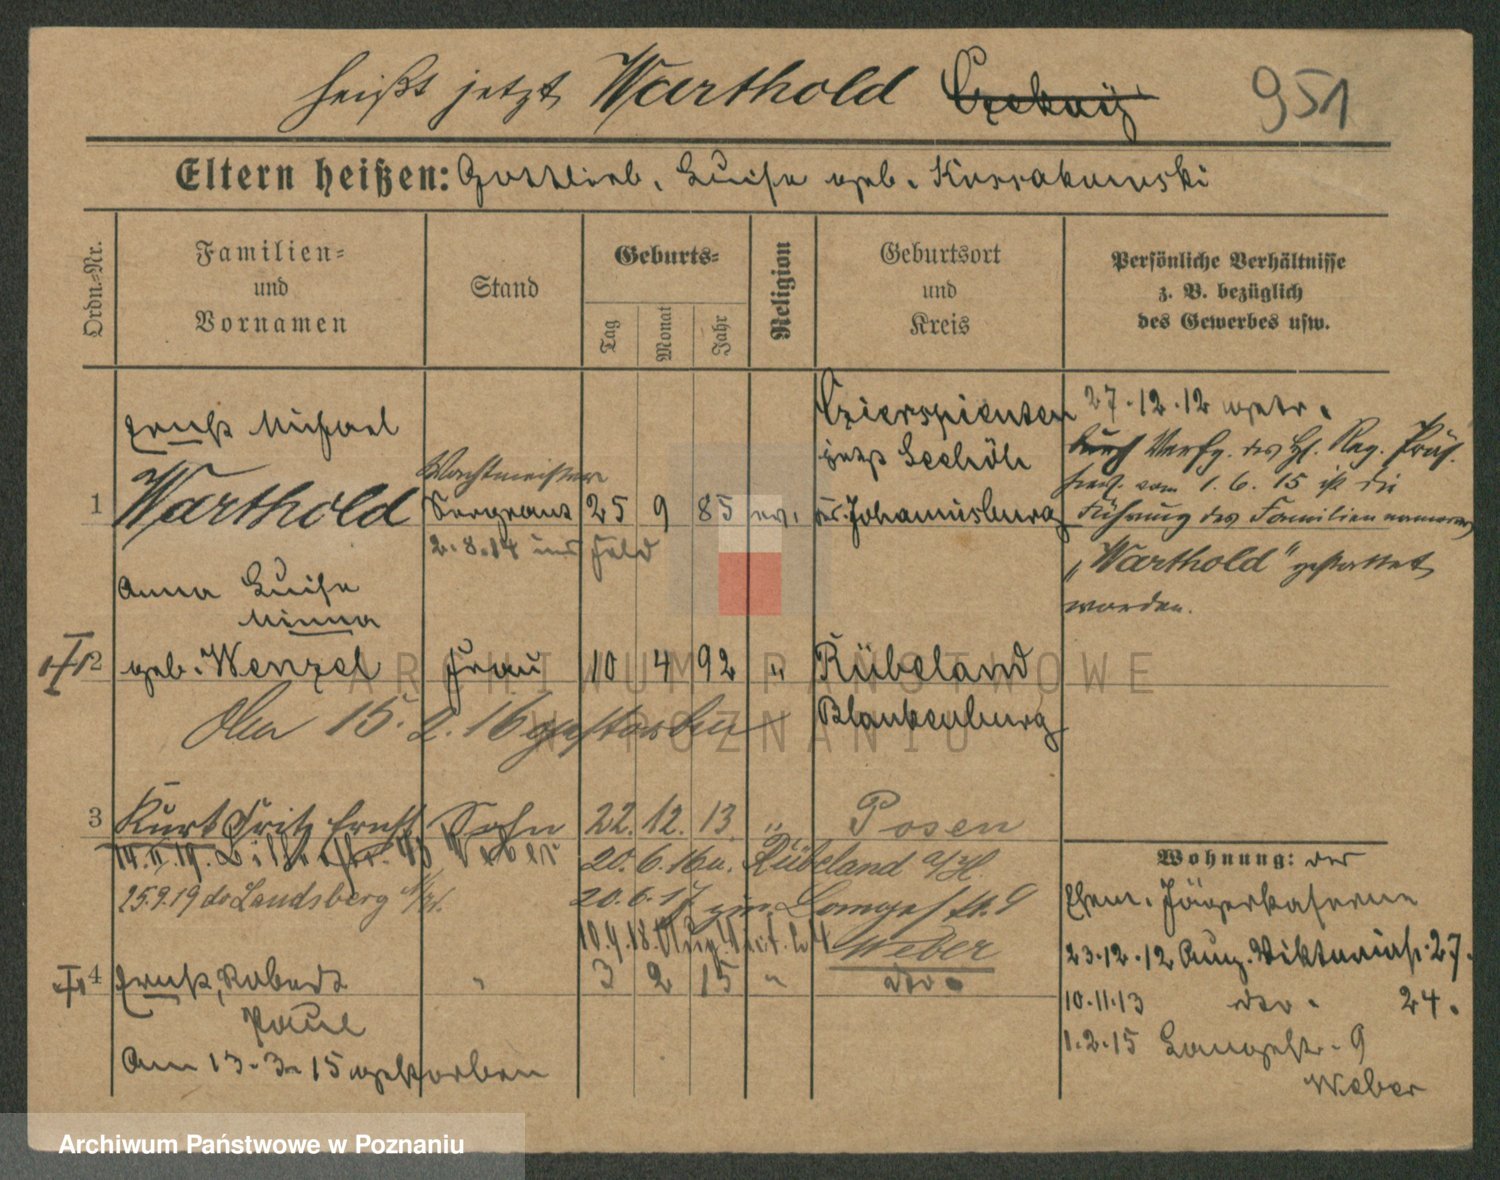 heißt jetzt Warthold Czekaij 951
Eltern heißen: Gottlieb, Luise geb. Kossakowski
Ordn.-Nr.
Familien-
und
Vornamen
Stand
Geburts-
Tag
Monat
Jahr
Religion
Geburtsort
und
Kreis
Persönliche Verhältnisse
z. B. bezüglich
des Gewerbes usw.
Ernst Michael
1 Warthold
Wachtmeister
Sergeant 25 9 85 ev.
2.8.14 ins Feld
Czierspienten
jetzt Seehöh
Kr. Johannisburg
27.12.12 getr.
durch Verfg. des H. Reg. Präs.
hier vom 1.6.15 ist die
Führung des Familiennamens
„Warthold" gestattet
worden.
Anna Luise
Minna
2 geb. Wenzel Frau 10 4 92 " Rübeland
Blankenburg
Am 15.2.16 gestorben
3 Kurt Fritz Ernst Sohn 22. 12. 13. " Posen
14.11.17. Weber
20.6.16 n. Rübeland a/H.
25.9.19 do Landsberg a/W.
20.6.17 Langestr. 9
10.9.18.
Weber
4 Ernst, Robert " 3 2 15 " do.
Paul
Am 13.3.15 gestorben
Wohnung: der
Ehem. Jägerkaserne
23.12.12 Aug. Viktoriast. 27.
10.11.13 do. 24.
1.2.15 Langestr. 9
Weber
ARCHIWUM PAŃSTWOWE
W POZNANIU
Archiwum Państwowe w Poznaniu